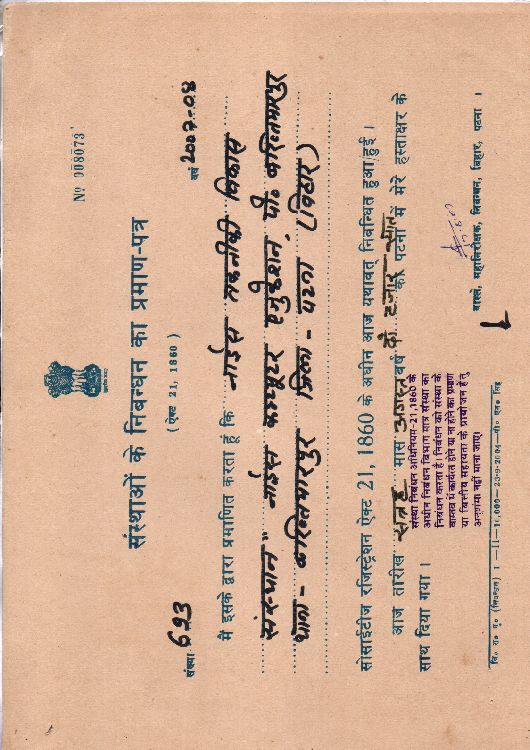 № 008073
संस्थाओं के निबन्धन का प्रमाण-पत्र
( ऐक्ट 21, 1860 )
संख्या 693 वर्ष 2007-08
मैं इसके द्वारा प्रमाणित करता हूं कि नाईस तकनीकी विकास
संस्थान" नाईस कम्प्यूटर एजुकेशन, पो० बख्तियारपुर
थाना - बख्तियारपुर जिला - पटना (बिहार)
सोसाईटीज रजिस्ट्रेशन ऐक्ट 21, 1860 के अधीन आज यथावत् निबन्धित हुआ/हुई ।
आज तारीख सत्रह मास अगस्त वर्ष दो हजार सात को पटना में मेरे हस्ताक्षर के
साथ दिया गया ।
संस्था निबंधन अधिनियम-21,1860 के
अधीन निबंधन विभाग मात्र संस्था का
निबंधन करता है। निबंधन को संस्था के
वास्तव में कार्यरत होने या न होने का प्रमाण
या वित्तीय सहायता के प्रायोजन हेतु
अनुशंसा नहीं माना जाए।
वास्ते, महानिरीक्षक, निबन्धन, बिहार, पटना ।
बि० स० मु० (निबन्धन) 1—II—10,000—23-9-2004—